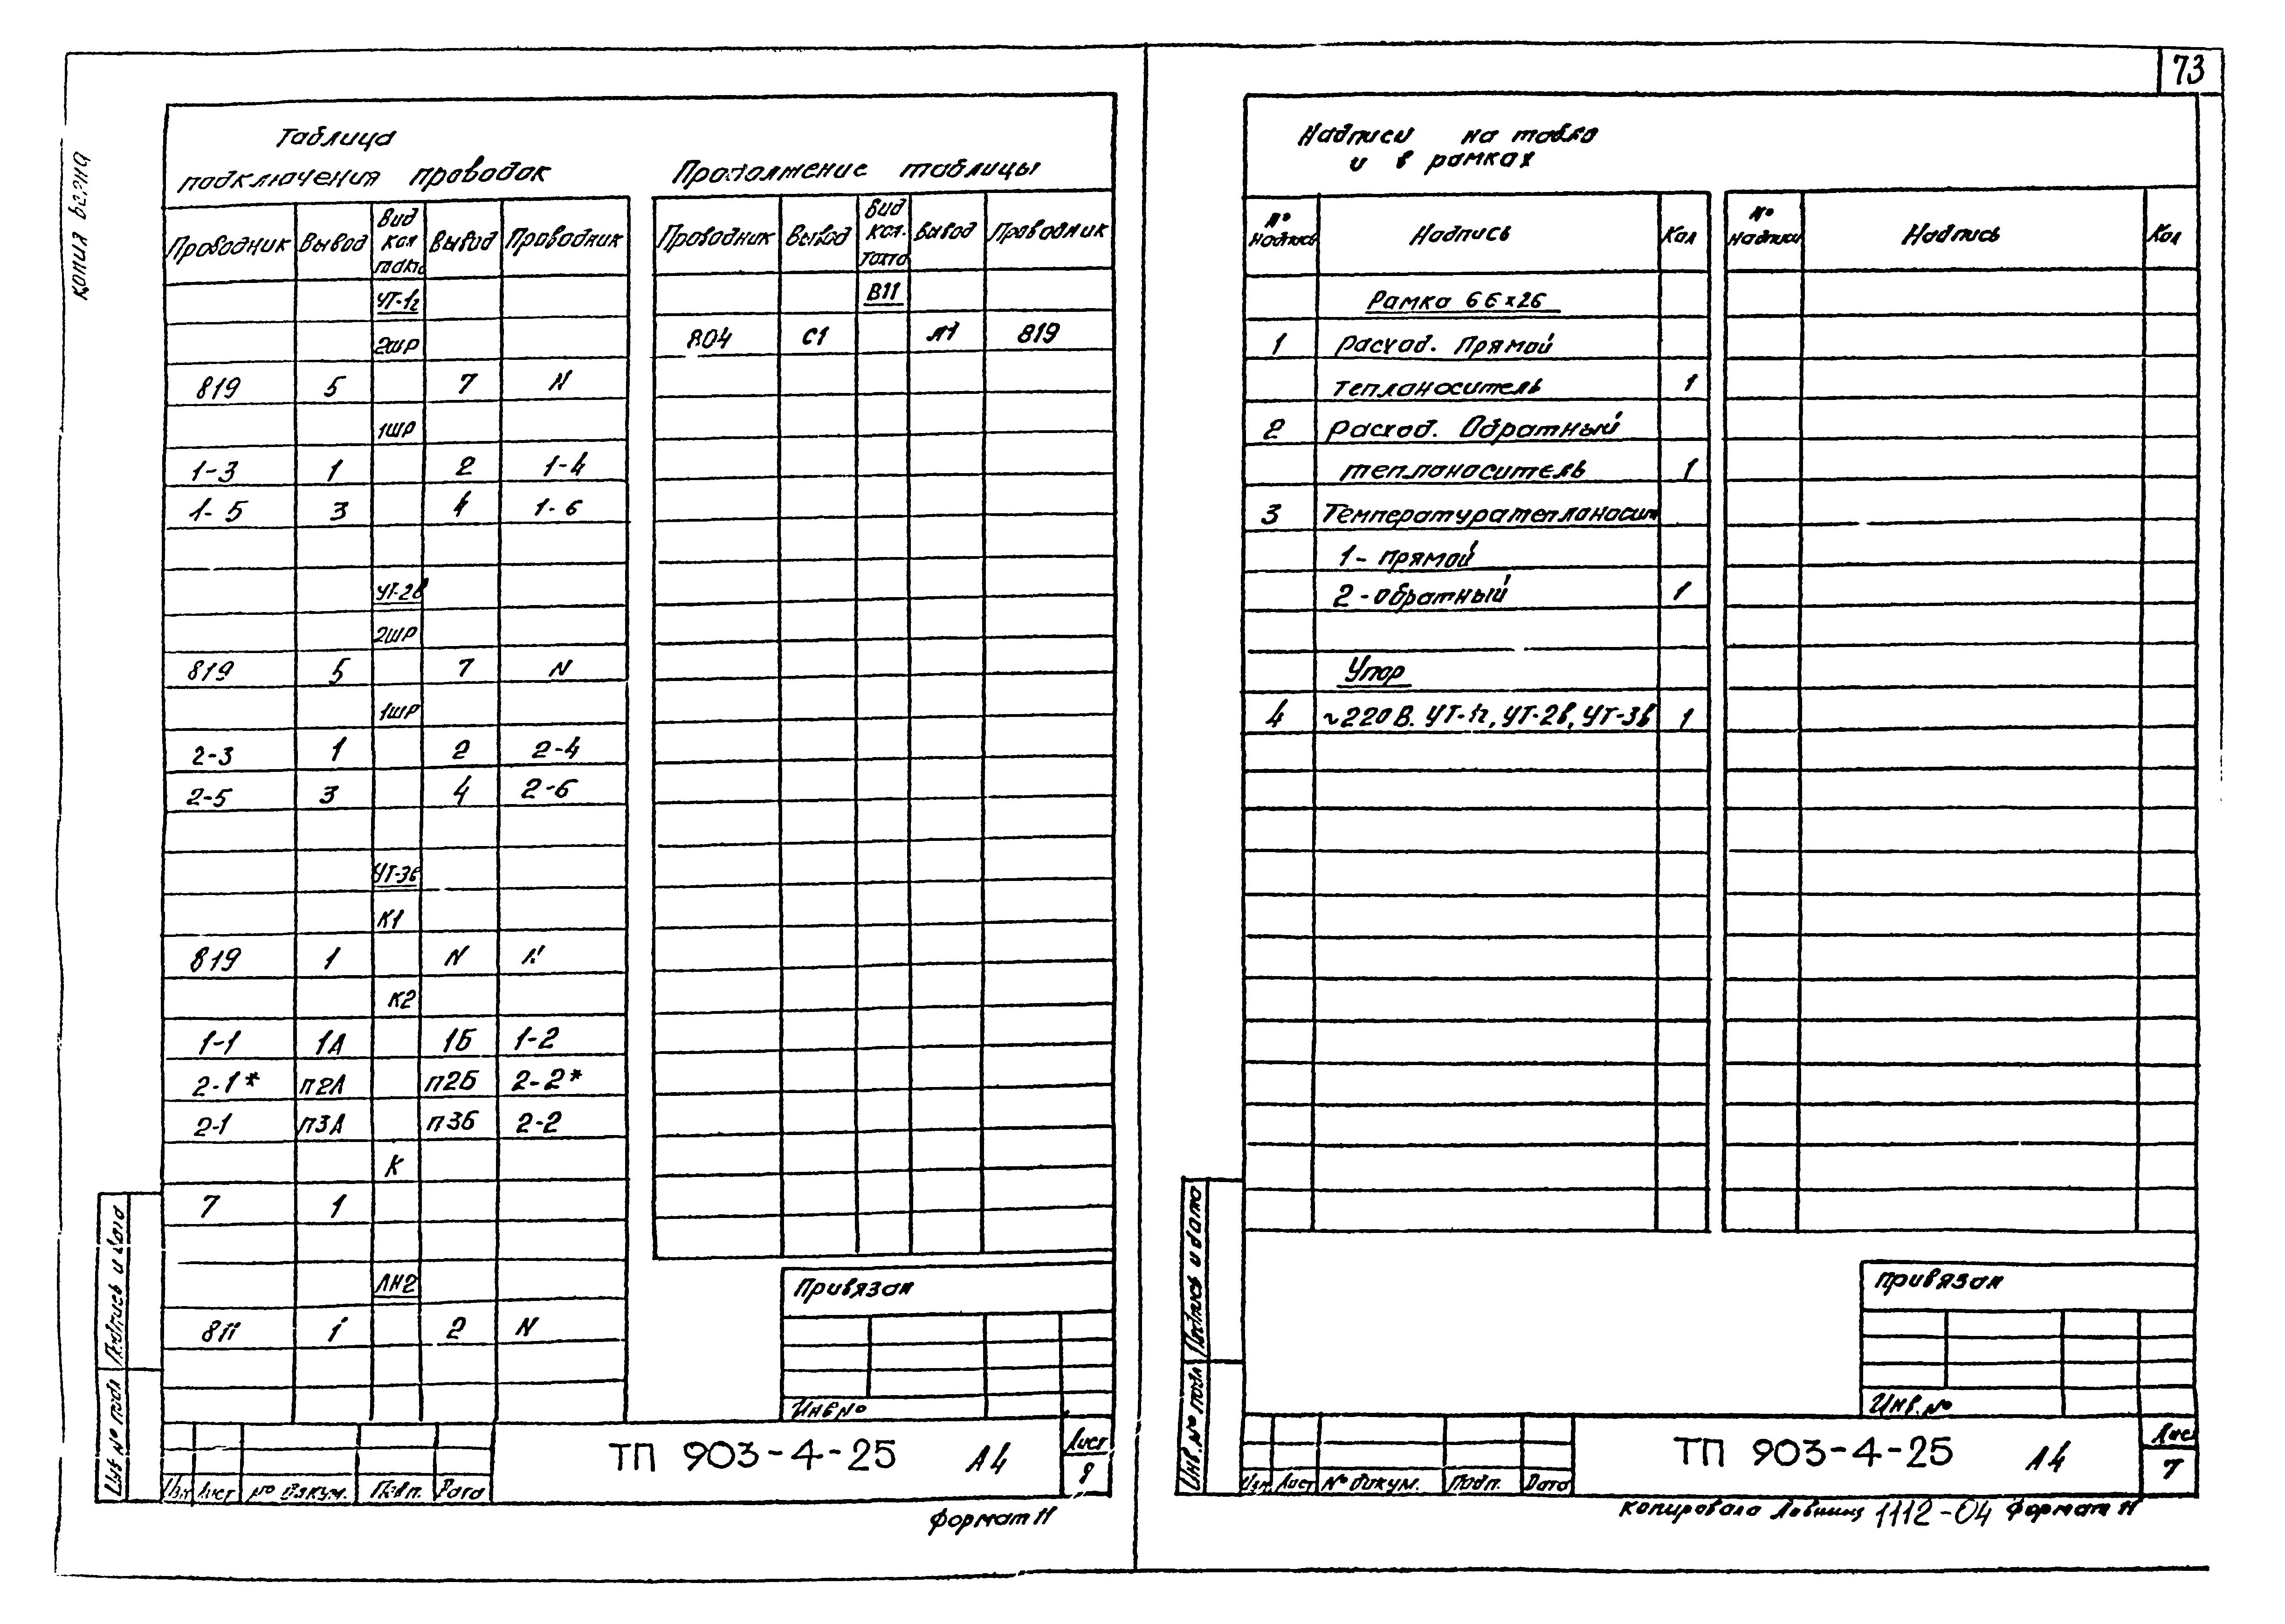 73
Таблица
подключения проводок
Проводник Вывод Вид кон такта Вывод Проводник
УТ-1г
2ШР
819 5 7 N
1ШР
1-3 1 2 1-4
1-5 3 4 1-6
УТ-2в
2ШР
819 5 7 N
1ШР
2-3 1 2 2-4
2-5 3 4 2-6
УТ-3в
К1
819 1 N N
К2
1-1 1А 1Б 1-2
2-1* п2А п2Б 2-2*
2-1 п3А п3Б 2-2
К
7 1
ЛН2
811 1 2 N
Продолжение таблицы
Проводник Вывод Вид кон. такта Вывод Проводник
В11
804 С1 Л1 819
Привязан
Инв №
Изм Лист № докум. Подп. Дата
ТП 903-4-25 А4
Лист
Формат 11
Инв № подл Подпись и дата
Надписи на табло
и в рамках
№ надписи Надпись Кол № надписи Надпись Кол
Рамка 66×26
1 Расход. Прямой
теплоноситель 1
2 Расход. Обратный
теплоноситель 1
3 Температура теплоносит
1- прямой
2-обратный 1
Упор
4 ~220 В. УТ-1г, УТ-2в, УТ-3в 1
Привязан
Инв. №
Изм Лист № докум. Подп. Дата
ТП 903-4-25 А4
Лис
7
Копировала 1112-04 Формат 11
Инв. № подл Подпись и дата